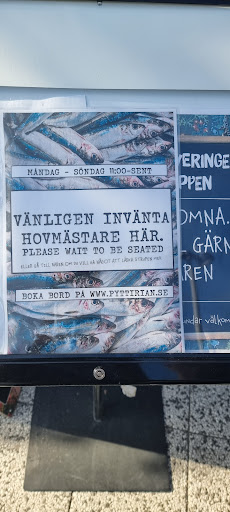 MÅNDAG - SÖNDAG 11:00-SENT
VÄNLIGEN INVÄNTA
HOVMÄSTARE HÄR.
PLEASE WAIT TO BE SEATED
BOKA BORD PÅ WWW.PYTTIRIAN.SE
VERINGE
PPEN
OMNA.
GÄRN
REN
välkom